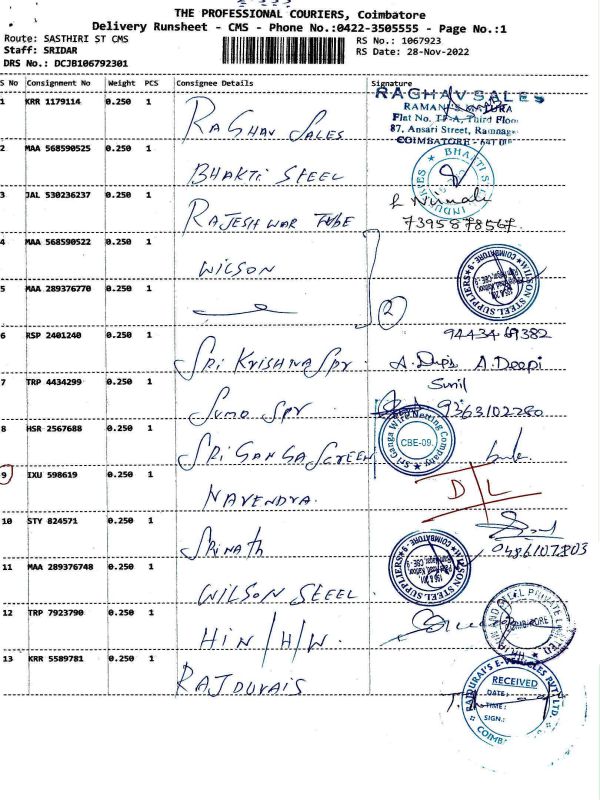 THE PROFESSIONAL COURIERS, Coimbatore
Delivery Runsheet - CMS - Phone No.:0422-3505555 - Page No.:1
Route: SASTHIRI ST CMS
RS No.: 1067923
Staff: SRIDAR
RS Date: 28-Nov-2022
DRS No.: DCJB106792301
S No Consignment No Weight PCS Consignee Details Signature
1 KRR 1179114 0.250 1 RAGHAV SALES
RAGHAV SALES
Flat No. Third Floor
87, Ansari Street, Ramnagar
COIMBATORE - 641
2 MAA 568590525 0.250 1 BHAKTI STEEL
BHAKTI INDUSTRIES
3 JAL 530236237 0.250 1 RAJESHWAR TUBE
Nirmala
7395878567
4 MAA 568590522 0.250 1 WILSON
WILSON STEEL SUPPLIERS COIMBATORE - 9
5 MAA 289376770 0.250 1
2
6 RSP 2401240 0.250 1 SRI KRISHNA SPR
94434 69382
A. Deepi
7 TRP 4434299 0.250 1 SUMO SPR
Sunil
9363102280
8 HSR 2567688 0.250 1 SRI GANGA SCREEN
Sri Ganga Wire Netting Company
CBE-09.
9 IXU 598619 0.250 1 NAVENDRA.
D L
10 STY 824571 0.250 1 SRINATH
11 MAA 289376748 0.250 1 WILSON STEEL
WILSON STEEL SUPPLIERS COIMBATORE - 9
12 TRP 7923790 0.250 1 HIN/H/W.
PRIVATE LIMITED
13 KRR 5589781 0.250 1 RAJDURAIS
RAJDURAI'S E-VEHICLES PVT LTD.
RECEIVED
DATE:
TIME:
SIGN.: